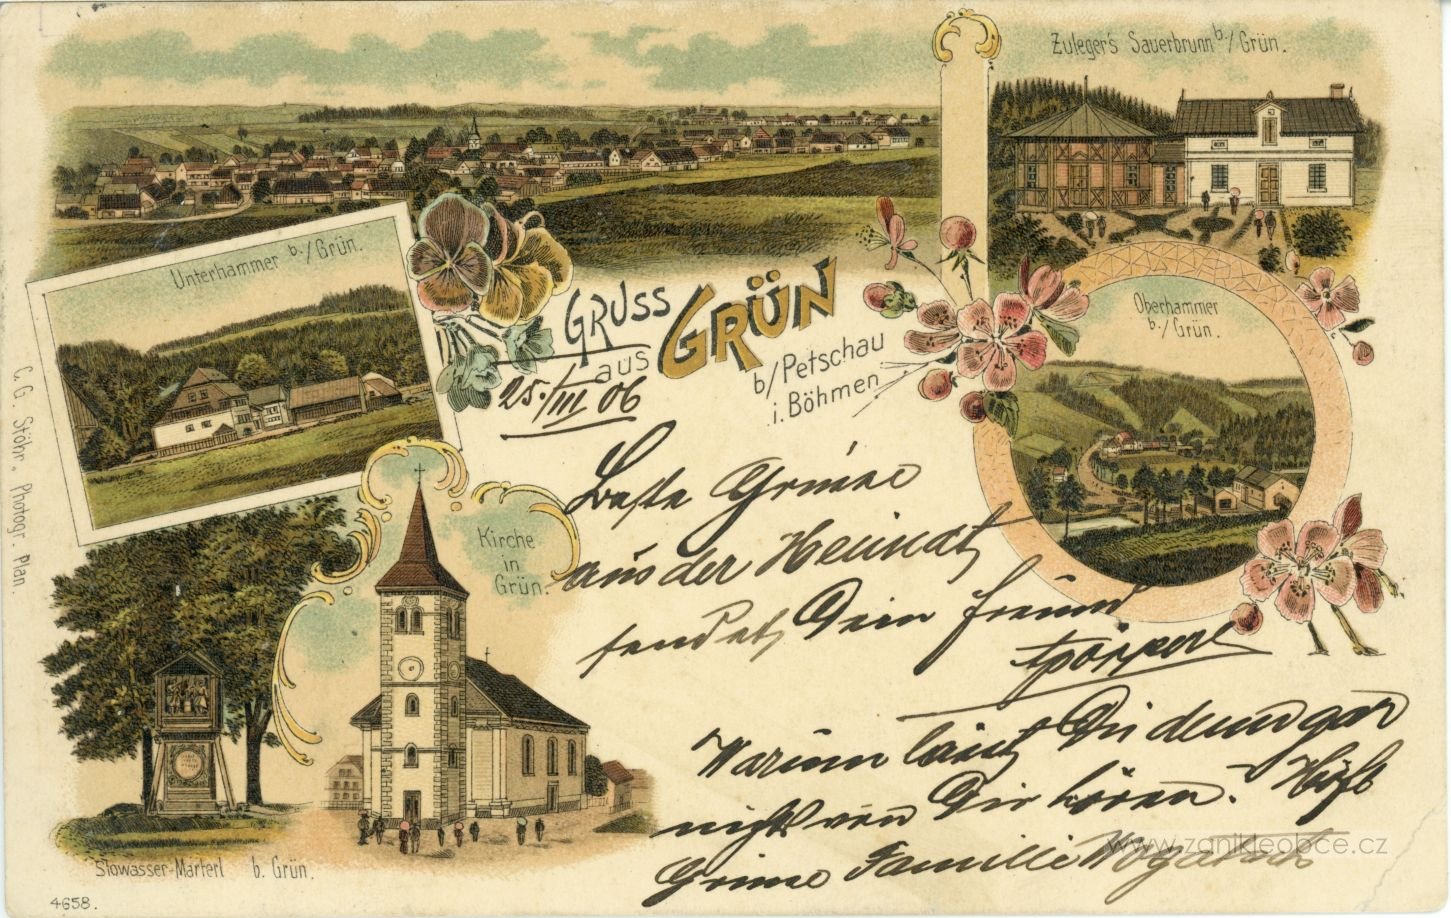 Zuleger's Sauerbrunn b./Grün.
Unterhammer b./Grün.
Gruss
aus GRÜN
b/Petschau
i. Böhmen
Oberhammer
b./Grün.
25./III 06
Kirche
in
Grün.
C. G. Stöhr. Photogr. Plan.
Beste Grüsse
aus der Heimat
sendet Dein Freund
Warum läuft Du denn gar
nichts von Dir hören.
Grüsse Familie
Stowasser-Marterl b. Grün.
4658.
www.zanikleobce.cz